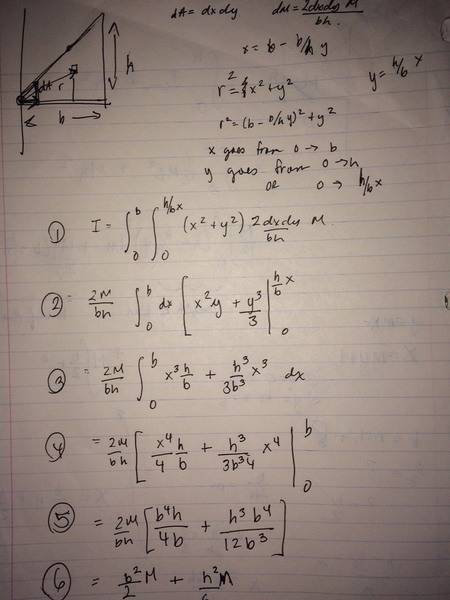 dA = dxdy    dM = 2dxdy M / bh.
x = b - b/h y
y = h/b x
h
dA r
b
r² = x² + y²
r² = (b - b/h y)² + y²
x goes from 0 → b
y goes from 0 → h
OR 0 → h/b x
① I = ∫₀ᵇ ∫₀^(h/b x) (x² + y²) 2dxdy/bh M
② = 2M/bh ∫₀ᵇ dx [x²y + y³/3 |₀^(h/b x)
③ = 2M/bh ∫₀ᵇ x³ h/b + h³/3b³ x³ dx
④ = 2M/bh [x⁴/4 h/b + h³/3b³4 x⁴ |₀ᵇ
⑤ = 2M/bh [b⁴h/4b + h³b⁴/12b³]
⑥ = b²/2 M + h²M/6